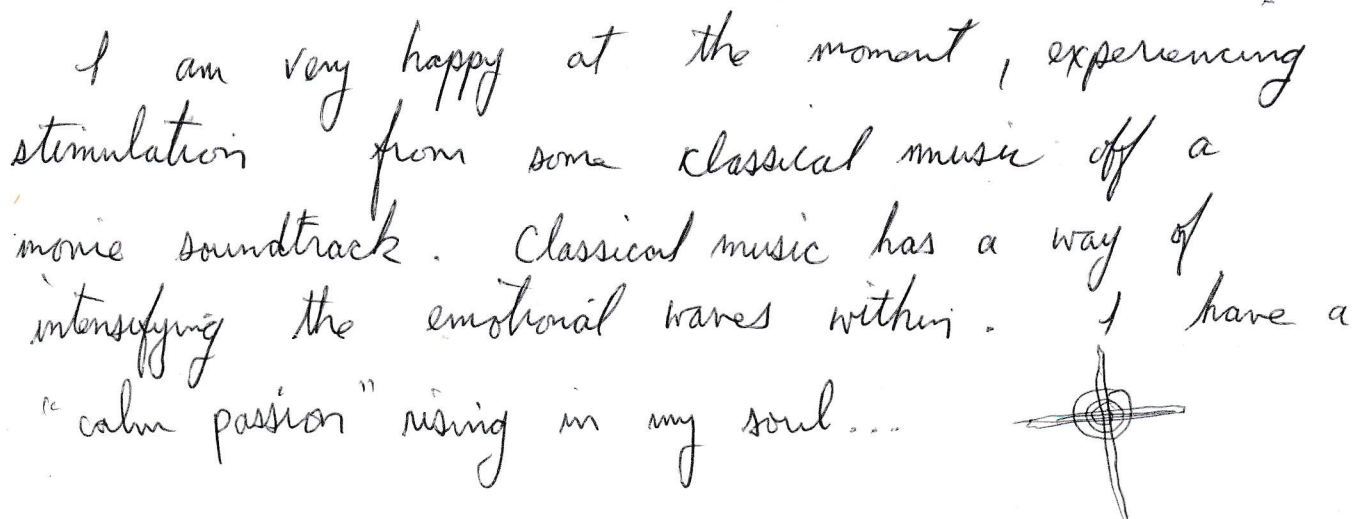 I am very happy at the moment, experiencing
stimulation from some classical music off a
movie soundtrack. Classical music has a way of
intensifying the emotional waves within. I have a
"calm passion" rising in my soul...